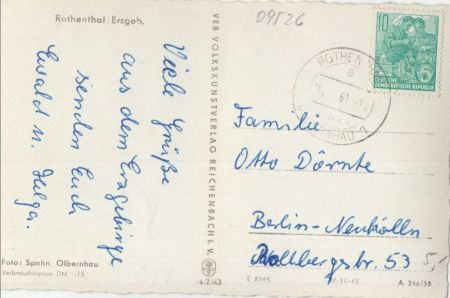 09526
Rothenthal/Erzgeb.
Viele Grüße
aus dem Erzgebirge
senden Euch
Ewald u. Helga.
Foto: Spahn, Olbernhau
Verbraucherpreis DM -,15
VEB VOLKSKUNSTVERLAG REICHENBACH I. V.
14/2043
10
DEUTSCHE
DEMOKRATISCHE REPUBLIK
ROTHEN
a
61
Familie
Otto Dörnte
Berlin-Neukölln
Rollbergstr. 53
5,-
E 8745
V-14-45
A 246/58